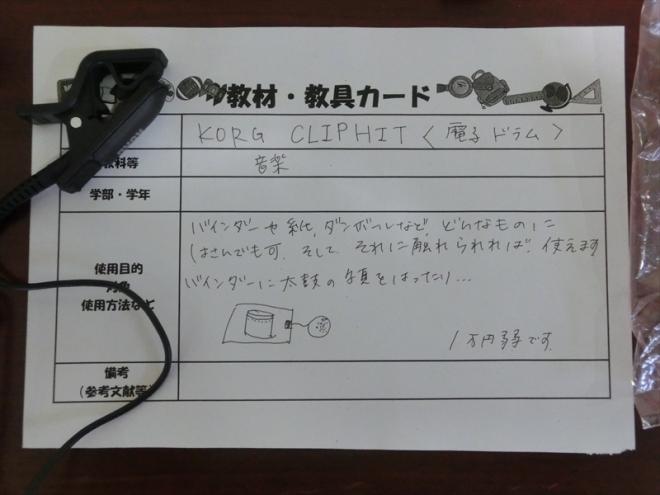 教材・教具カード
KORG CLIPHIT <電子ドラム>
教科等 音楽
学部・学年
バインダーや紙、ダンボールなど、どんなもの!に
はさんでも可、そして、それに触れられれば、使えます
使用目的
対象
使用方法など
バインダーに太鼓の写真をはったり…
1万円弱です
備考
(参考文献等)